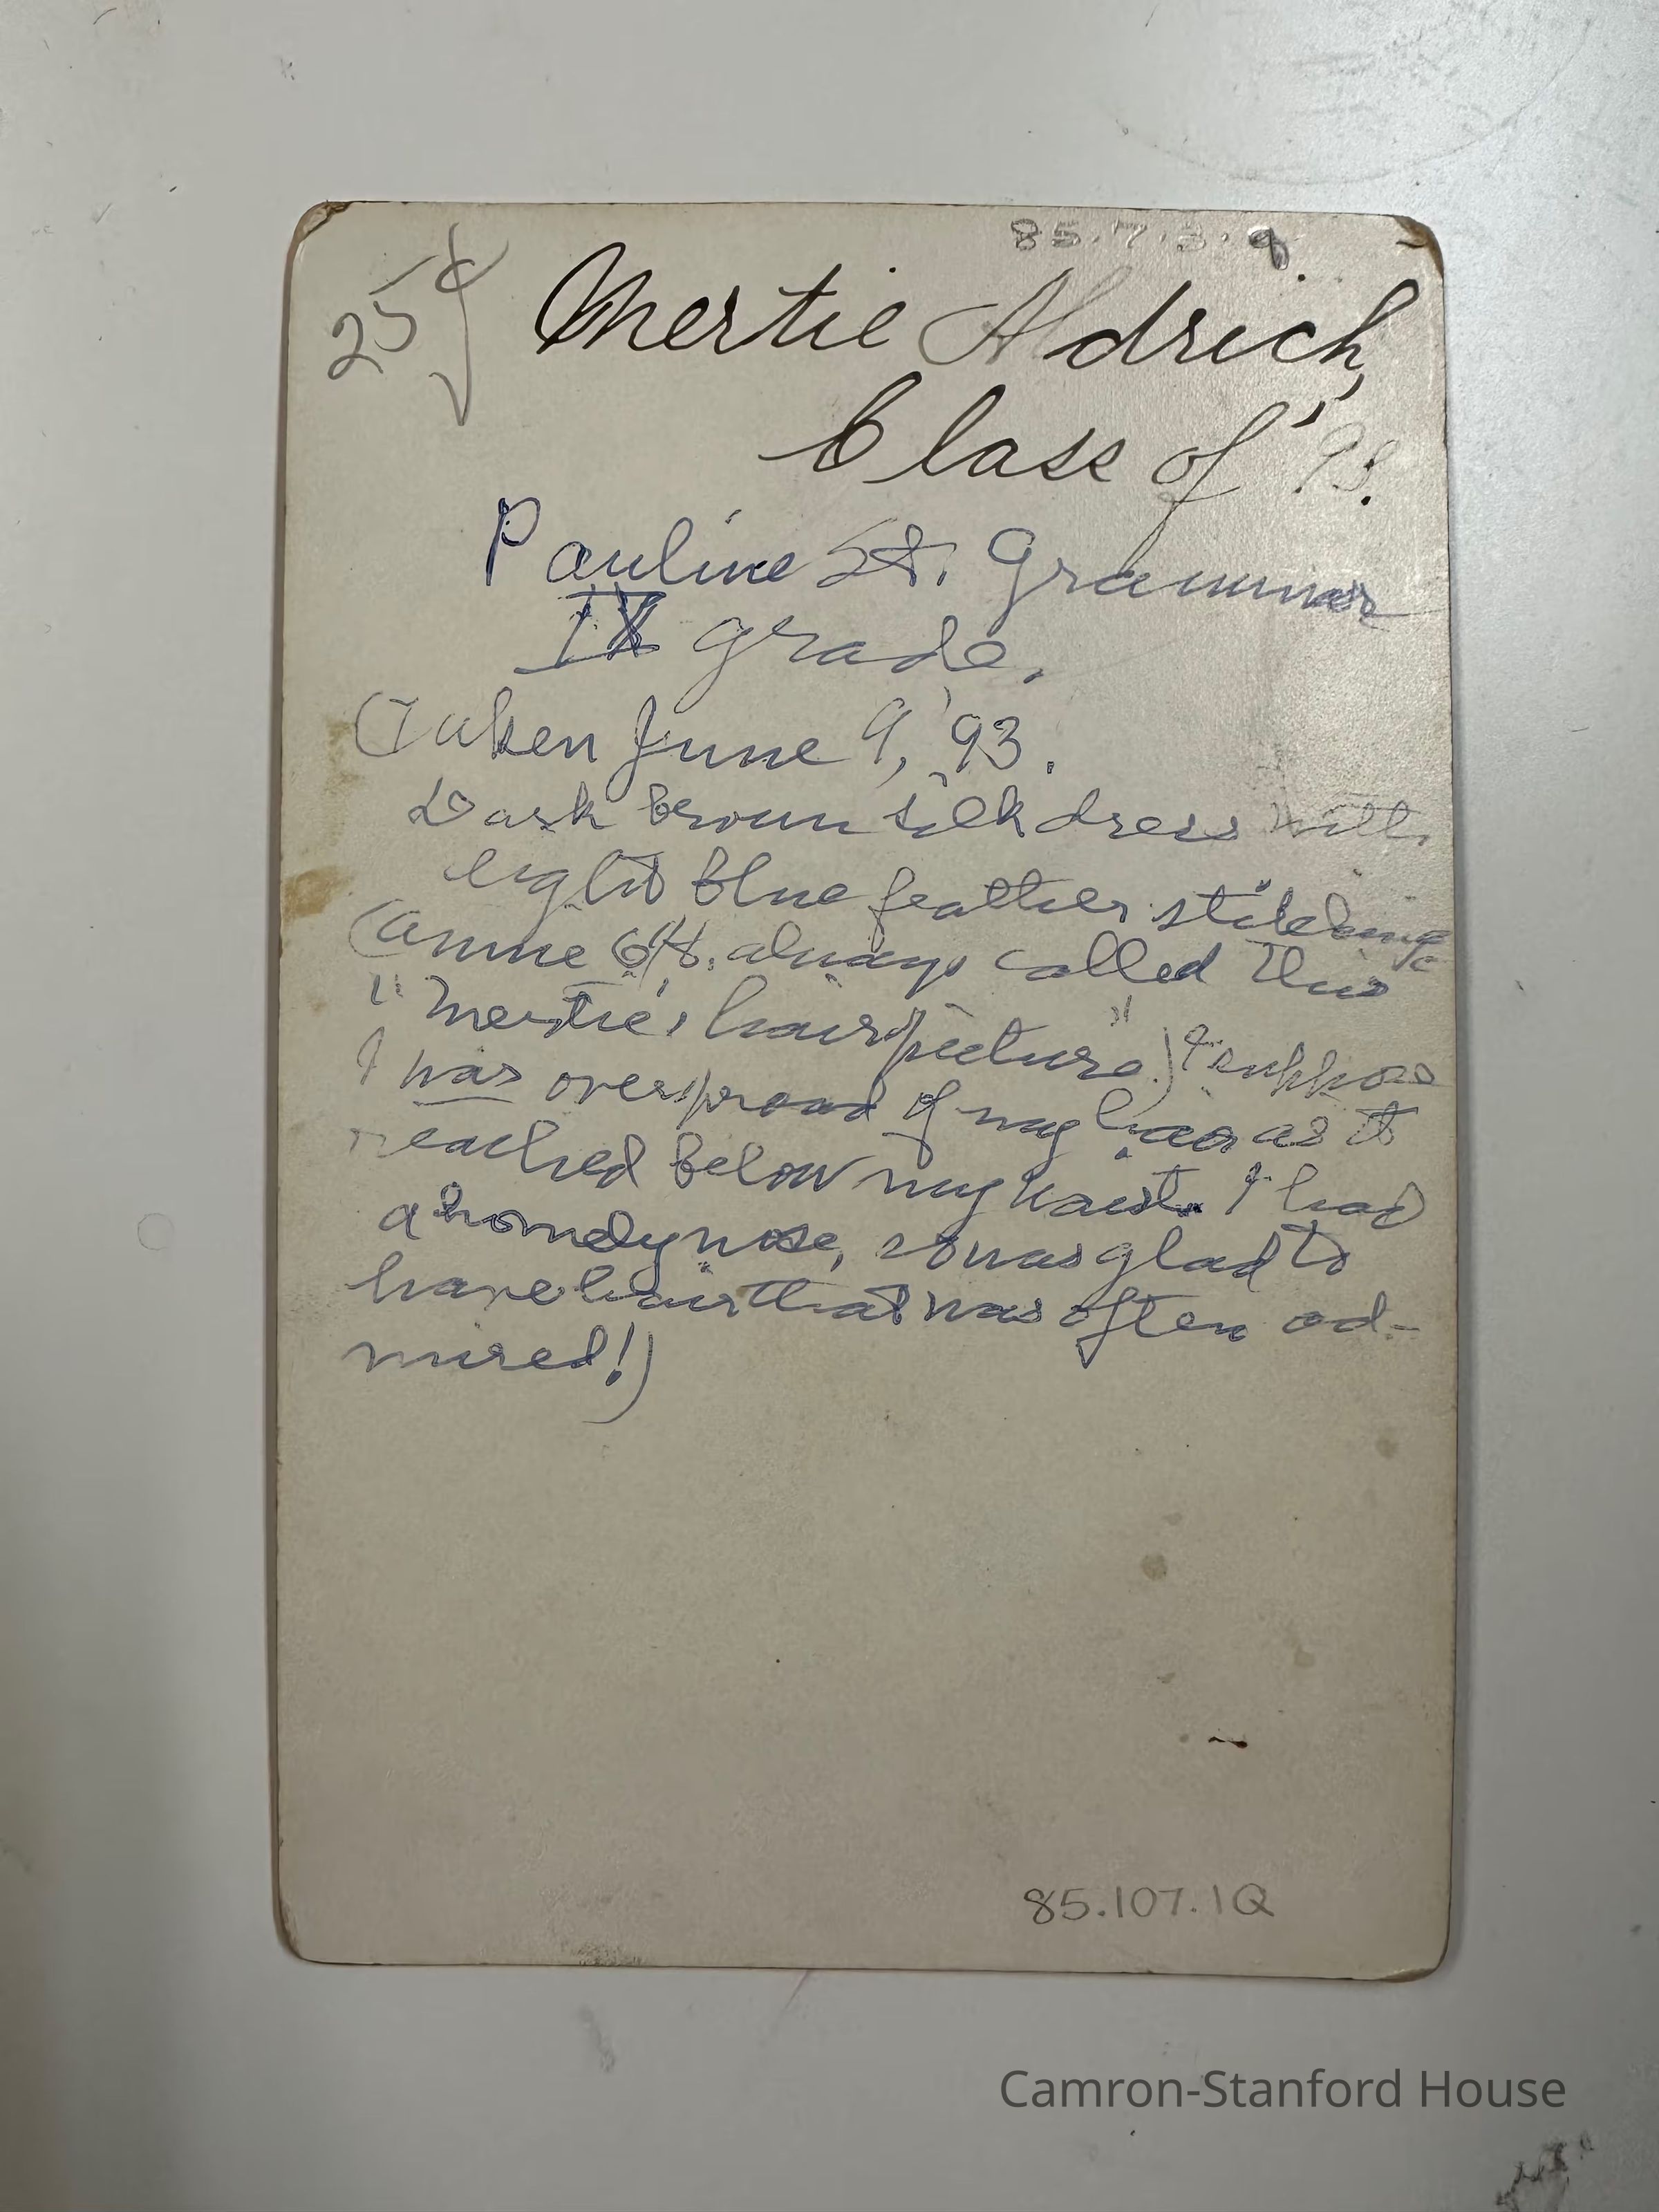 85.7.3.9
25¢
Mertie Aldrich,
Class of '93.
Pauline St. Grammar
IX grade.
(Taken June 9, '93.
Dark brown silk dress with
light blue feather stitching
(Annie always called this
"Mertie's hair picture.") I suppose
I was overproud of my hair as it
reached below my waist. I had
a homely nose, so was glad to
have hair that was often ad-
mired!)
85.107.1Q
Camron-Stanford House